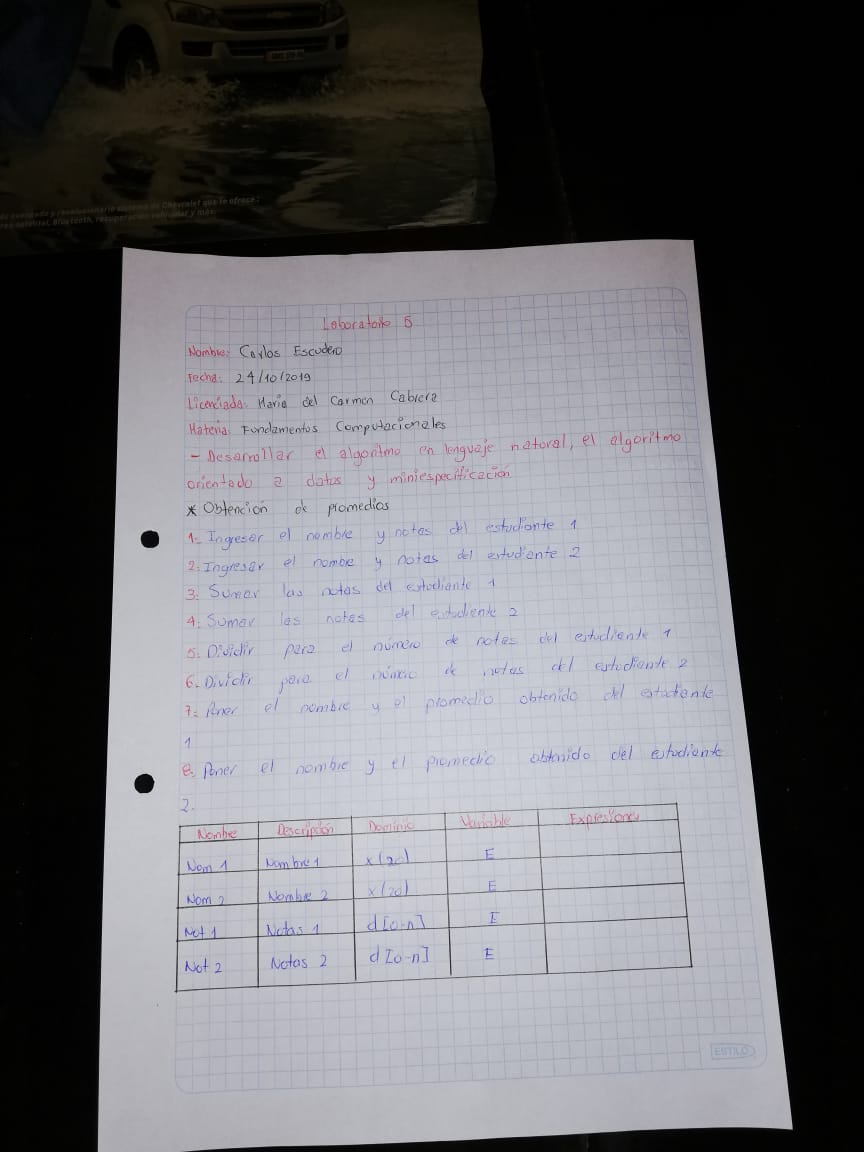 de avanzada y revolucionario sistema de Chevrolet que te ofrece:
satelital, Bluetooth, recuperación vehicular y más.
Laboratorio 5
Nombre: Carlos Escudero
Fecha: 24/10/2019
Licenciada: Maria del Carmen Cabrera
Materia: Fundamentos Computacionales
- Desarrollar el algoritmo en lenguaje natural, el algoritmo
orientado a datos y miniespecificación
* Obtención de promedios
1.- Ingresar el nombre y notas del estudiante 1
2. Ingresar el nombe y notas del estudiante 2
3. Sumar las notas del estudiante 1
4. Sumar las notas del estudiante 2
5. Dividir para el número de notas del estudiante 1
6. Dividir para el número de notas del estudiante 2
7. Poner el nombre y el promedio obtenido del estudiante
1
8. Poner el nombre y el promedio obtenido del estudiante
2.
Nombre Descripción Dominio Variable Expresiones
Nom 1 Nombre 1 x(20) E
Nom 2 Nombre 2 x(20) E
Not 1 Notas 1 d[0-n] E
Not 2 Notas 2 d[0-n] E
ESTILO